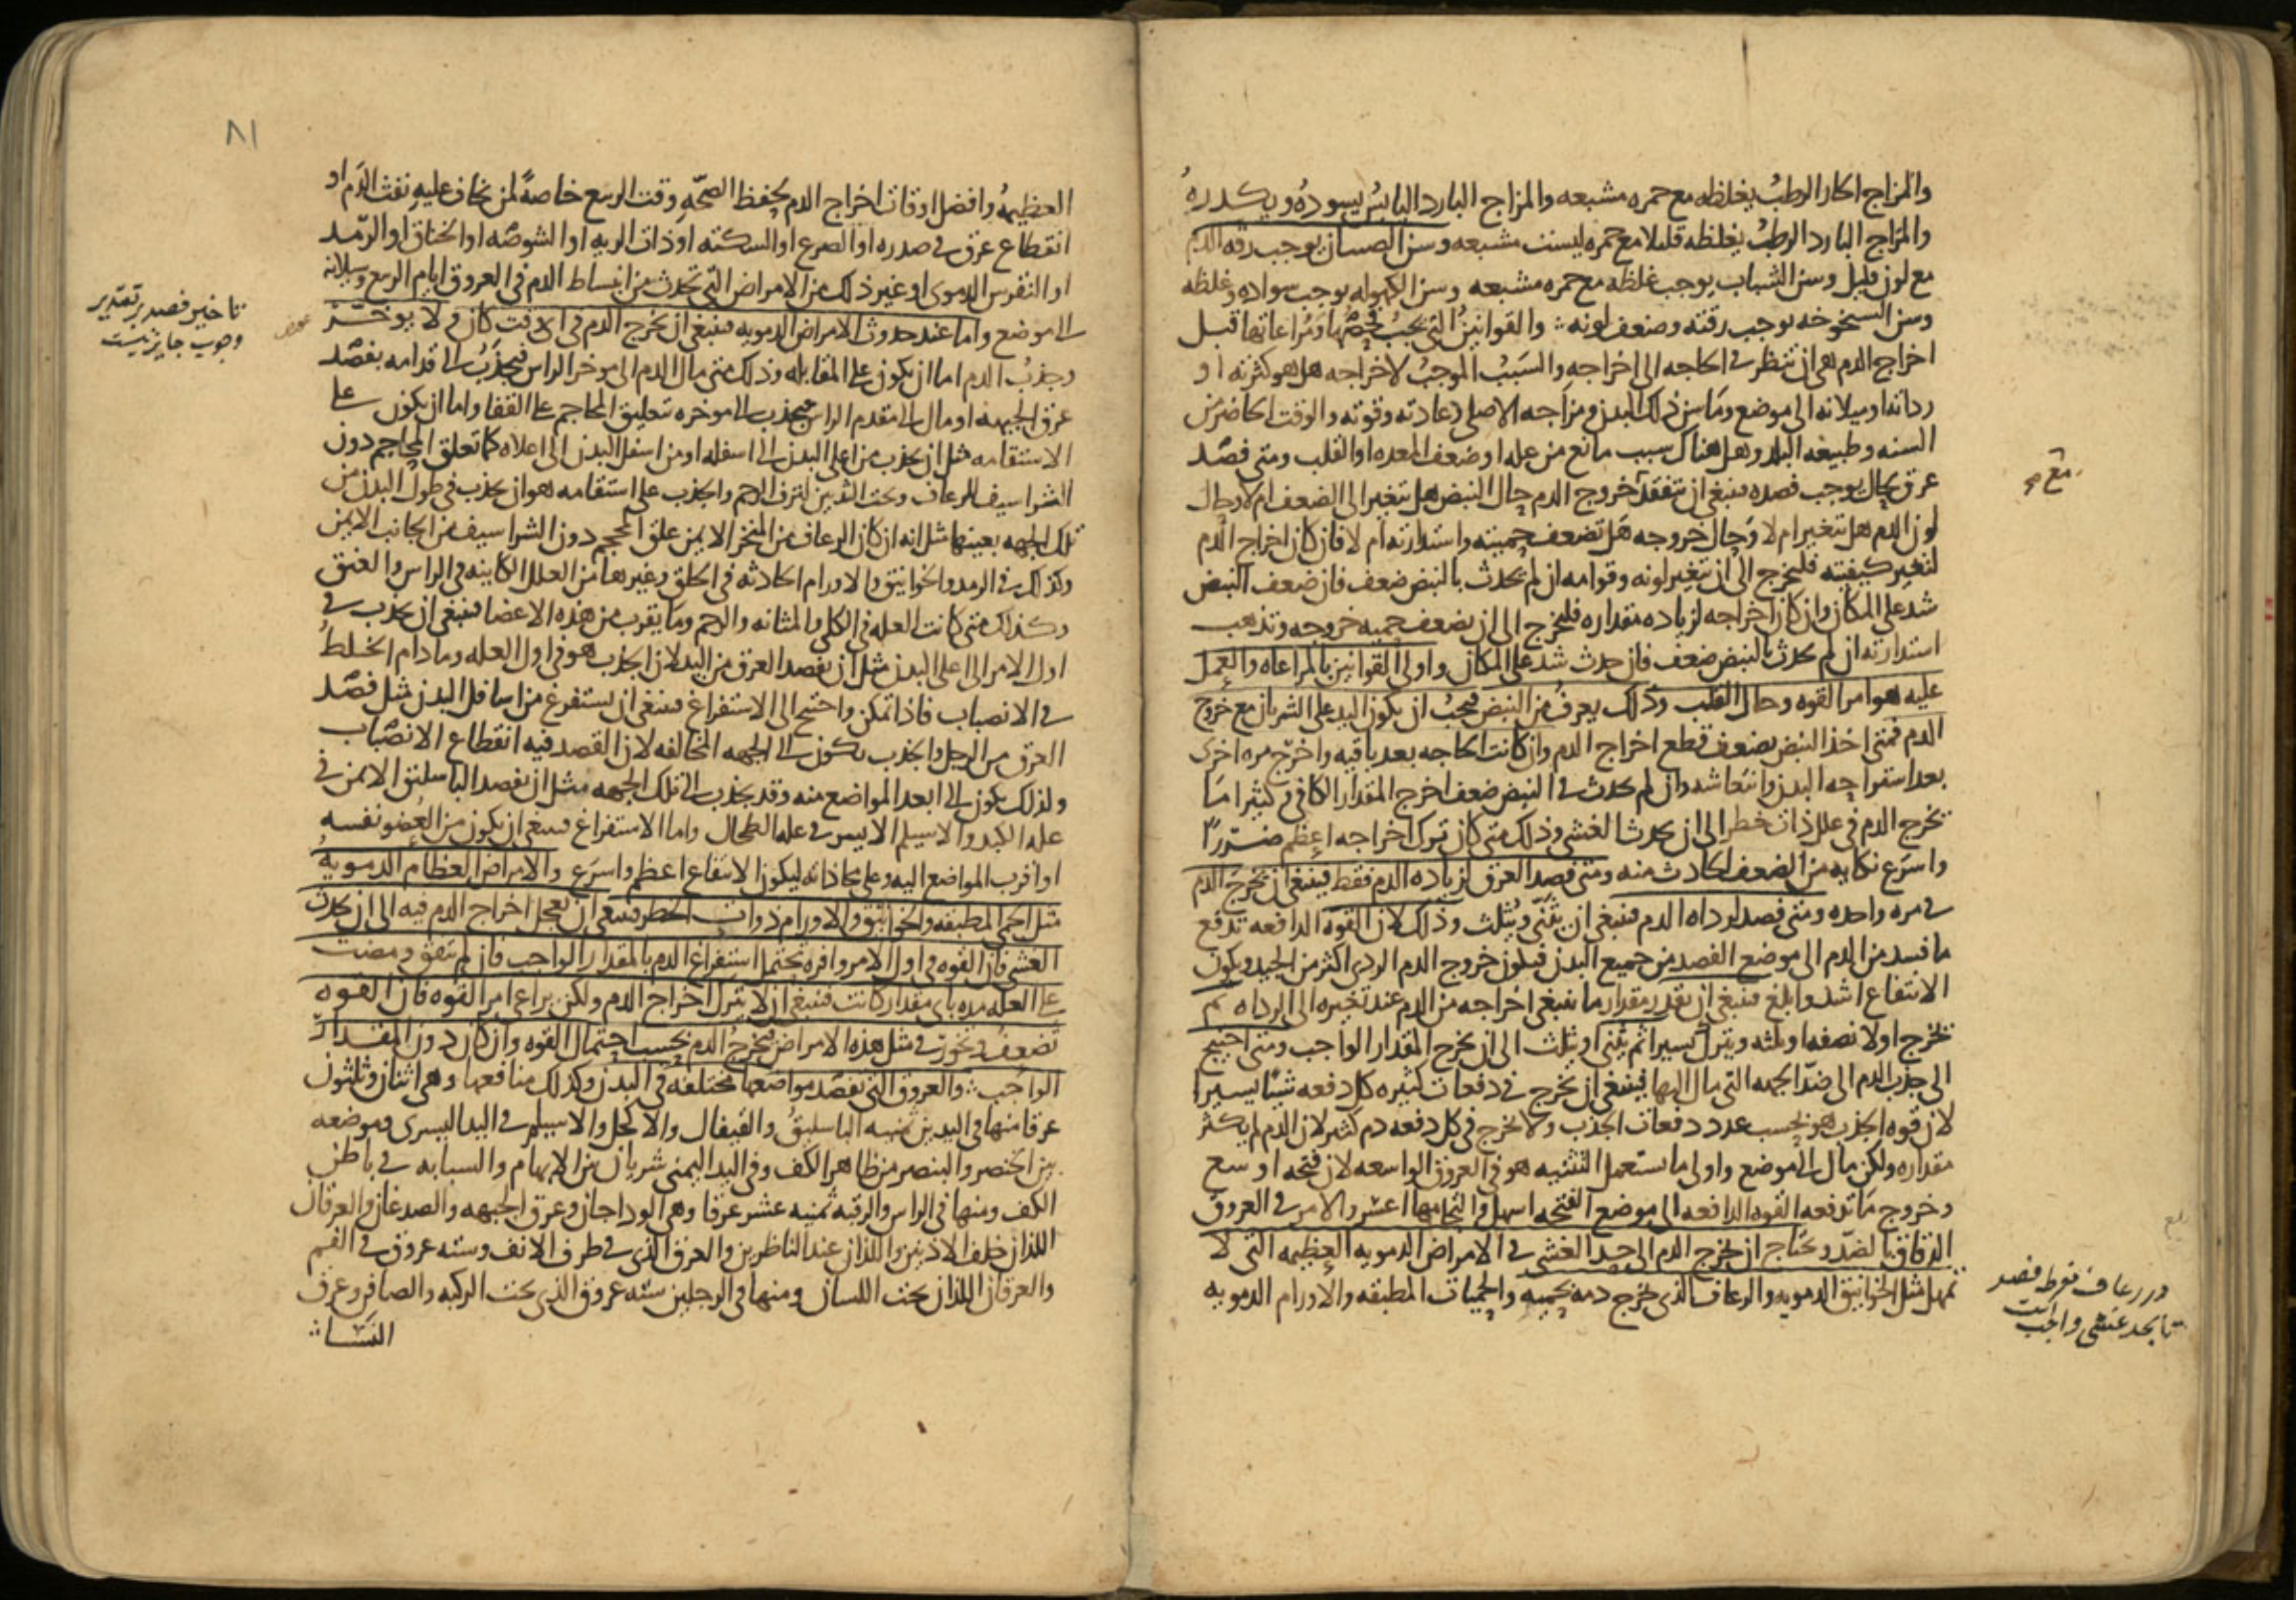 والمزاج الحار الرطب يغلظه مع حمره مشبعه والمزاج البارد اليابس يسوده ويكدره
والمزاج البارد الرطب يغلظه قليلا مع حمره ليست مشبعه وسن الصبيان يوجب رقه الدم
مع لون قليل وسن الشباب يوجب غلظه مع حمره مشبعه وسن الكهوله يوجب سواده وغلظه
وسن الشيخوخه يوجب رقته وضعف لونه والقوانين التي يجب فحصها ومراعاتها قبل
اخراج الدم هي ان تنظر في الحاجه الى اخراجه والسبب الموجب لاخراجه هل هو كثرته او
رداته او ميلانه الى موضع وما سن ذلك البدن ومزاجه الاصلي وعادته وقوته والوقت الحاضر من
السنه وطبيعه البلد وهل هناك سبب مانع من عله او ضعف المعده او القلب ومتى فصد
عرق بحال يوجب فصده فينبغي ان تتفقد خروج الدم حال النبض هل تغير الى الضعف ام لا وحال
لون الدم هل تغير ام لا وحال خروجه هل تضعف حميته واستدارته ام لا فان كان اخراج الدم
لتغير كيفيته فليخرج الى ان يتغير لونه وقوامه ان لم يحدث بالنبض ضعف فان ضعف النبض
شد على المكان وان كان اخراجه لزياده مقداره فليخرج الى ان يضعف حميه خروجه وتذهب
استدارته ان لم يحدث بالنبض ضعف فان حدث شد على المكان واولى القوانين بالمراعاه والعمل
عليه هو امر القوه وحال القلب وذلك يعرف من النبض فيجب ان يكون اليد على الشريان مع خروج
الدم فمتى اخذ النبض يضعف قطع اخراج الدم وان كانت الحاجه بعد باقيه واخرج مره اخرى
بعد استفراحه البدن وانتعاشه وان لم يحدث في النبض ضعف اخرج المقدار الكافي وكثيرا ما
يخرج الدم في علل ذات خطر الى ان يحدث الغشي وذلك متى كان ترك اخراجه اعظم ضررا
واسرع نكايه من الضعف الحادث منه ومتى فصد العرق لزياده الدم فقط فينبغي ان يخرج الدم
في مره واحده ومتى فصد لرداه الدم فينبغي ان يثنى ويثلث وذلك لان القوه الدافعه تدفع
ما فسد من الدم الى موضع الفصد من جميع البدن فيكون خروج الدم الردي اكثر من الجيد ويكون
الانتفاع اشد وابلغ فينبغي ان يقدر مقدار ما ينبغي اخراجه من الدم عند تغيره الى الرداه ثم
يخرج اولا نصفه او ثلثه ويترك يسيرا ثم يثنى او يثلث الى ان يخرج المقدار الواجب ومتى احتيج
الى جذب الدم الى ضد الجهه التي مال اليها فينبغي ان يخرج في دفعات كثيره كل دفعه شيا يسيرا
لان قوه الجذب هو بحسب عدد دفعات الجذب ولا يخرج في كل دفعه دم كثير لان الدم لم يكثر
مقداره ولكن مال الى موضع واولى ما تستعمل التثنيه هو في العروق الواسعه لان فتحه اوسع
وخروج ما تدفعه القوه الدافعه الى موضع الفتحه اسهل والتحامها اعسر والامر في العروق
الدقاق بالضد ويحتاج ان يخرج الدم الى حد الغشي في الامراض الدمويه العظيمه التي لا
تمهل مثل الخوانيق الدمويه والرعاف الذي يخرج دمه بحميه والحميات المطبقه والاورام الدمويه
در رعاف مفرط فصد
تا بحد غشى واجب است
٨١
العظيمه وافضل اوقات اخراج الدم لحفظ الصحه وقت الربيع خاصة لمن يخاف عليه نفث الدم او
انقطاع عرق في صدره او الصرع او السكته او ذات الريه او الشوصه او الخناق او الرمد
او النقرس الدموي او غير ذلك من الامراض التي تحدث من انبساط الدم في العروق ايام الربيع وسيلانه
الى موضع واما عند حدوث الامراض الدمويه فينبغي ان يخرج الدم في اي وقت كان ولا يوخر
وجذب الدم اما ان يكون على المقابله وذلك متى مال الدم الى موخر الراس فيجذب الى قدامه بفصد
عرق الجبهه او مال الى مقدم الراس فيجذب الى موخره بتعليق المحاجم على القفا واما ان يكون على
الاستقامه مثل ان يجذب من اعلى البدن الى اسفله او من اسفل البدن الى اعلاه كما تعلق المحاجم دون
الشراسيف للرعاف وتحت الثديين لنزف الرحم والجذب على استقامه هو ان يجذب في طول البدن من
تلك الجهه بعينها مثل انه ان كان الرعاف من المنخر الايمن علق المحجم دون الشراسيف من الجانب الايمن
وكذلك في الرمد والخوانيق والاورام الحادثه في الحلق وغيرها من العلل الكاينه في الراس والعنق
وكذلك متى كانت العله في الكلى والمثانه والرحم وما يقرب من هذه الاعضا فينبغي ان يجذب في
اول الامر الى اعلى البدن مثل ان يفصد العرق من اليد لان الجذب هو في اول العله وما دام الخلط
في الانصباب فاذا تمكن واحتيج الى الاستفراغ فينبغي ان يستفرغ من اسافل البدن مثل فصد
العرق من الرجل والجذب يكون الى الجهه المخالفه لان القصد فيه انقطاع الانصباب
ولذلك يكون الى ابعد المواضع منه وقد يجذب الى تلك الجهه مثل ان يفصد الباسليق الايمن في
عله الكبد والاسيلم الايسر في عله الطحال واما الاستفراغ فينبغي ان يكون من العضو نفسه
او اقرب المواضع اليه وعلى محاذاته ليكون الانتفاع اعظم واسرع والامراض العظام الدمويه
مثل الحمى المطبقه والخوانيق والاورام ذوات الخطر فينبغي ان يعجل اخراج الدم فيه الى ان يحدث
الغشي فان القوه في اول الامر وافره تحتمل استفراغ الدم بالمقدار الواجب فان لم يتفق ومضت
على العله مده باي مقدار كانت فينبغي ان لا يترك اخراج الدم ولكن يراعى امر القوه فان القوه
تضعف وتخور في مثل هذه الامراض فيخرج الدم بحسب احتمال القوه وان كان دون المقدار
الواجب والعروق التي تفصد مواضعها مختلفه في البدن وكذلك منافعها وهي اثنان وثلثون
عرقا منها في اليدين ثمنيه الباسليق والقيفال والاكحل والاسيلم في اليد اليسرى وموضعه
بين الخنصر والبنصر من ظاهر الكف وفي اليد اليمنى شريان بين الابهام والسبابه في باطن
الكف ومنها في الراس والرقبه ثمنيه عشر عرقا وهي الوداجان وعرق الجبهه والصدغان والعرقان
اللذان خلف الاذنين واللذان عند الناظرين والعرق الذي في طرف الانف وسته عروق في الفم
والعرقان اللذان تحت اللسان ومنها في الرجلين سته عروق الذي تحت الركبه والصافن وعرق
النسا
تاخير فصد بر تقدير
وجوب جايز نيست